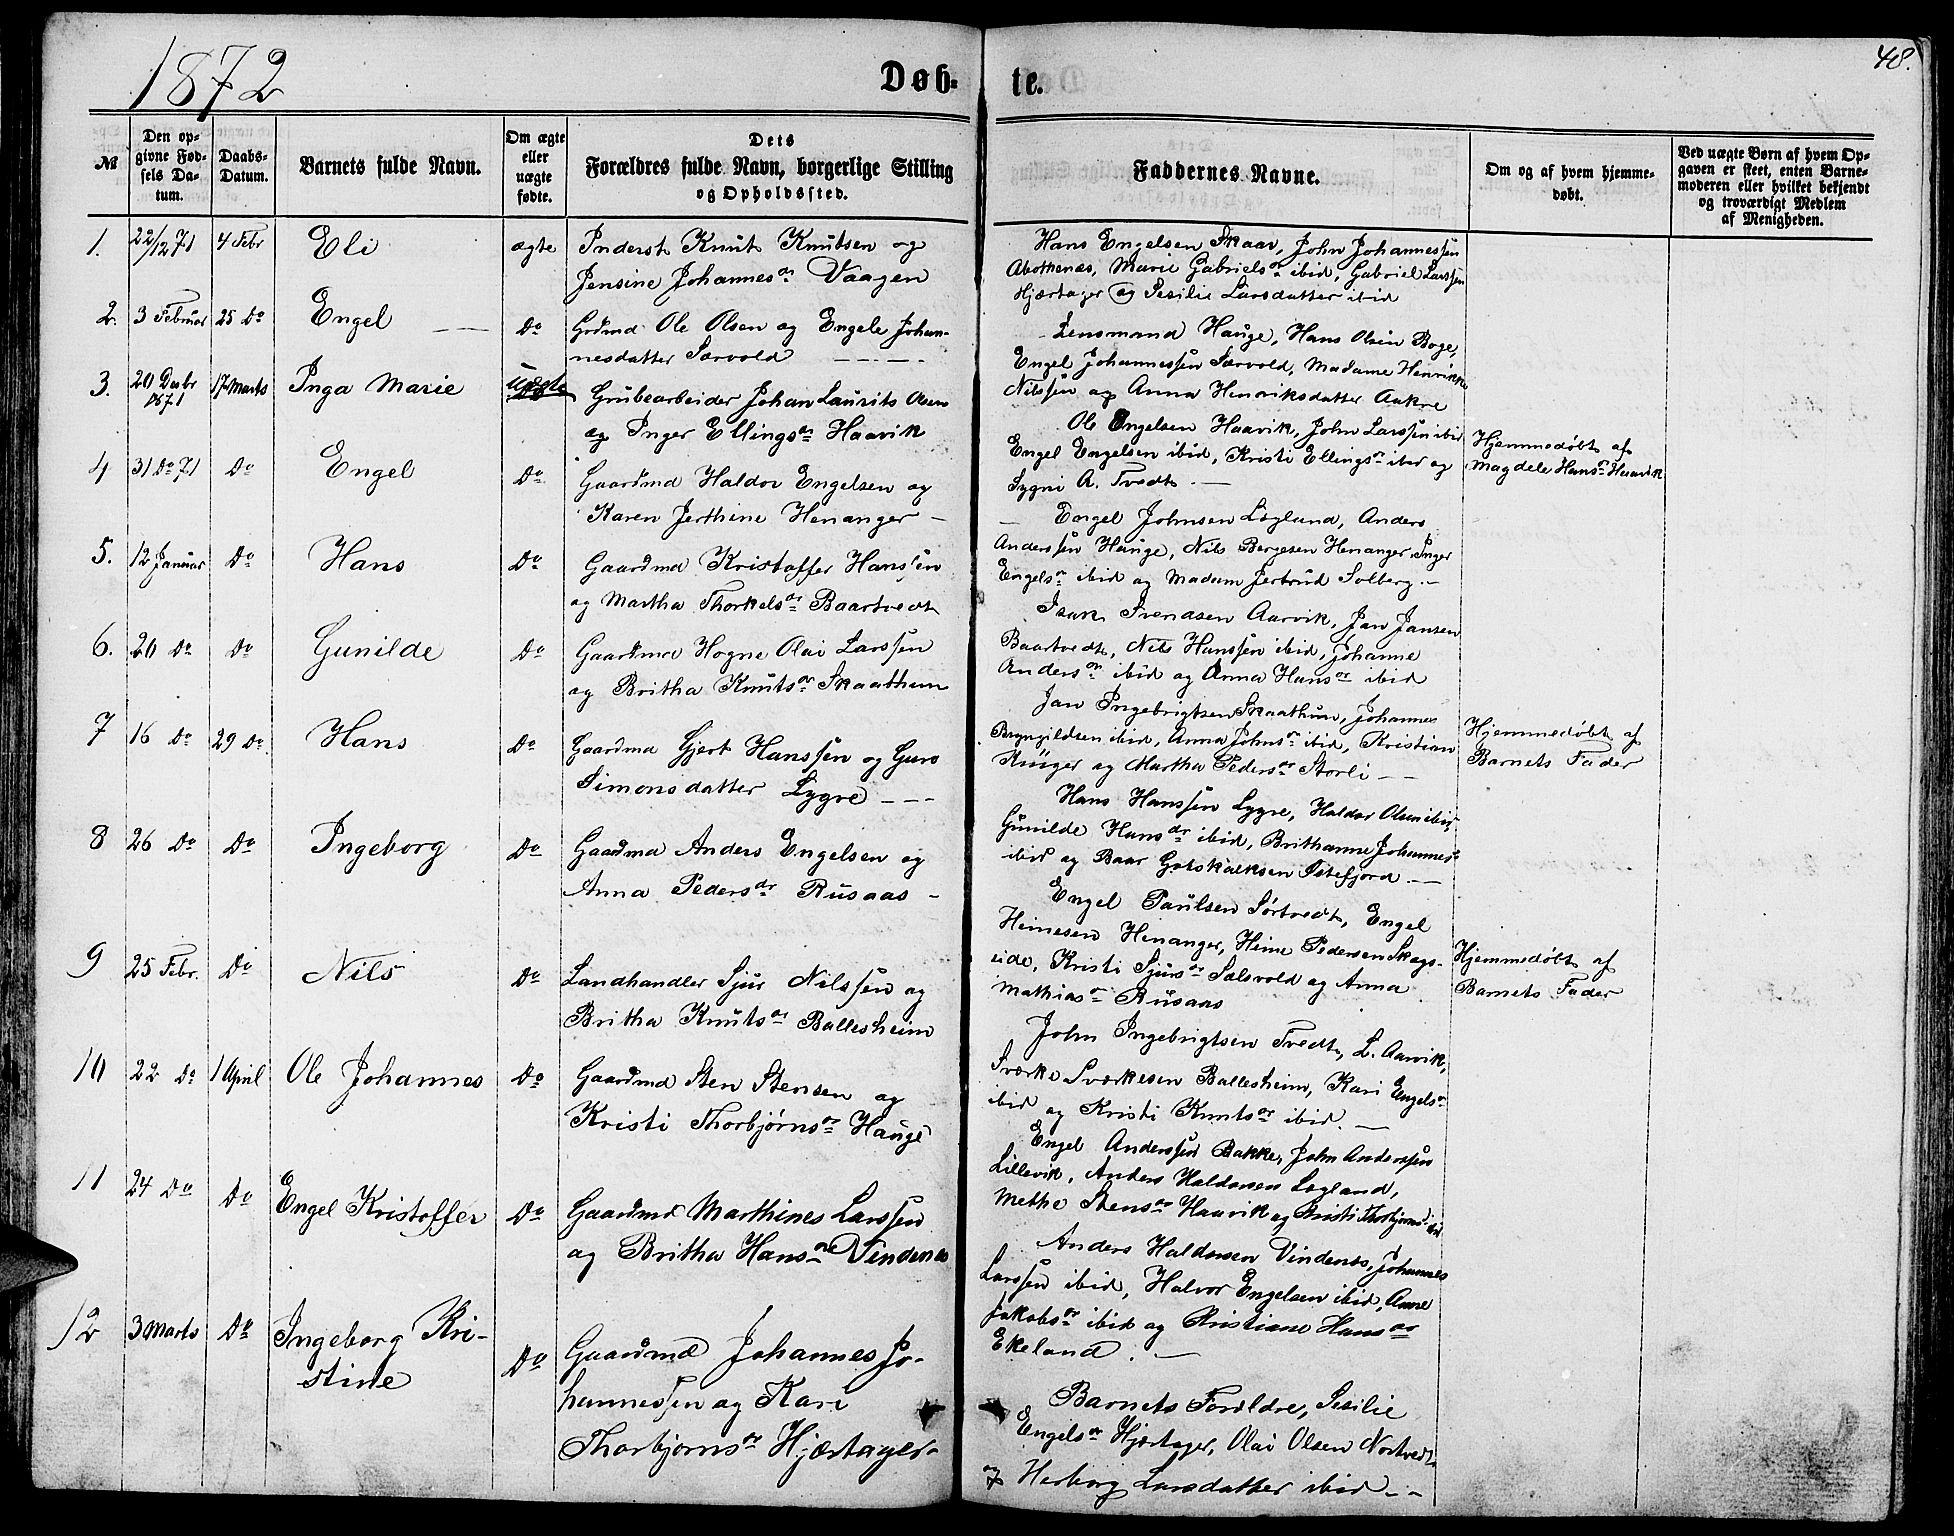 1872
Døb-
te.
48.
№
Den op-
givne Fød-
sels Da-
tum.
Daabs-
Datum.
Barnets fulde Navn.
Om ægte
eller
uægte
fødte.
Dets
Forældres fulde Navn, borgerlige Stilling
og Opholdssted.
Faddernes Navne.
Om og af hvem hjemme-
døbt.
Ved uægte Børn af hvem Op-
gaven er skeet, enten Barne-
moderen eller hvilket bekjendt
og troværdigt Medlem
af Menigheden.
1. 22/12 71 4 Febr Eli ægte Inderst Knut Knutsen og
Jensine Johannesdr Vaagen
Hans Engelsen Skaar, John Johannessen
Marie Gabrielsdr ibid, Gabriel Larssen
Hjærtager og Sesilie Larsdatter ibid
2. 3 Februar 25 Do Engel Do Grdmd Ole Olsen og Engele Johan-
nesdatter Særvold
Lensmand Hauge, Hans Olsen Boge,
Engel Johannessen Særvold, Madame Henrikke
Nilssen og Anna Henriksdatter Aakre
3. 20 Desbr 1871 17 Marts Inga Marie uægte Grubearbeider Johan Laurits Olsen
og Inger Ellingsdr Haavik
Ole Engelsen Haavik, John Larssen ibid
Engel Engelsen ibid, Kristi Ellingsdr ibid og
Sygni A. Tvedt.
Hjemmedøbt af
Magdele Hansdr Haavik
4 31 Do 71 Do Engel Do Gaardmd Haldor Engelsen og
Karen Jerthine Henanger
Engel Johnsen Løgland, Anders
Anderssen Hauge, Nils Børgesen Henanger, Inger
Engelsdr ibid og Madam Jertrud Solberg.
5. 12 Januar Do Hans Do Gaardmd Kristoffer Hanssen
og Martha Thorkelsdr Baartvedt
Isak Svendsen Aarvik, Jan Jansen
Baartvedt, Nils Hanssen ibid, Johanne
Andersdr ibid og Anna Hansdr ibid
6. 20 Do Do Gunilde Do Gaardmd Hogne Olai Larssen
og Britha Knutsdr Skaathun
Jan Ingebrigtsen Skaathun, Johannes
Brynjildsen ibid, Anna Johnsdr ibid, Kristian
Krüger og Martha Pedersdr Storli
7 16 Do 29 Do Hans Do Gaardmd Gjert Hanssen og Guro
Simonsdatter Lygre
Hans Hanssen Lygre, Haldor Olsen ibid,
Gunilde Hansdr ibid, Brithanne Johannesdr
ibid og Baar Gotskalksen Sitefjord.
Hjemmedøbt af
Barnets Fader
8 26 Do Do Ingeborg Do Gaardmd Anders Engelsen og
Anna Pedersdr Rusaas
Engel Paulsen Sørtvedt, Engel
Heinesen Henanger, Heine Pedersen Skogs-
eide, Kristi Sjursdr Sælsvold og Anna
Mathiasdr Rusaas
9 25 Febr. Do Nils Do Landhandler Sjur Nilssen og
Britha Knutsdr Ballesheim
John Ingebrigtsen Tvedt, L. Aarvik,
Sværke Sværkesen Ballesheim, Kari Engelsdr
ibid og Kristi Knutsdr ibid.
Hjemmedøbt af
Barnets Fader
10 22 Do 1 April Ole Johannes Do Gaardmd Sten Stensen og
Kristi Thorbjørnsdr Hauge
Engel Anderssen Bakke, John Anderssen
Lillevik, Anders Haldorsen Løgland,
Methe Stensdr Haavik og Kristi Thorbjørnsdr ibid
11 24 Do Do Engel Kristoffer Do Gaardmd Marthines Larssen
og Britha Hansdr Vindenes
Anders Haldorsen Vindenes, Johannes
Larssen ibid, Halvor Engelsen ibid, Anne
Jakobsdr ibid og Kristiane Hansdr
Ekeland.
12 3 Marts Do Ingeborg Kri-
stine Do Gaardmd Johannes Jo-
hannessen og Kari
Thorbjørnsdr Hjærtager
Barnets Forældre, Sesilie
Engelsdr Hjærtager, Olai Olsen Nortvedt
og Herborg Larsdatter ibid